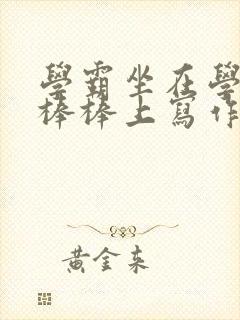 學霸坐在學
棒棒上寫作
黃金來